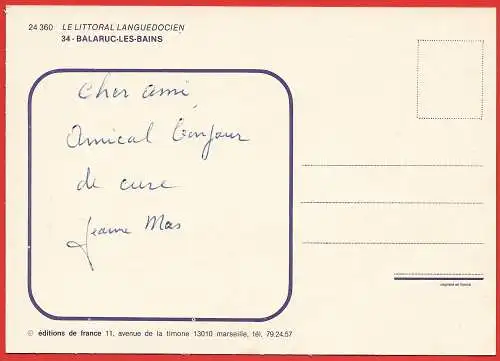 24 360 LE LITTORAL LANGUEDOCIEN
34 - BALARUC-LES-BAINS
Cher ami
Amical bonjour
de cure
Jeanne Mas
© éditions de france 11, avenue de la timone 13010 marseille, tél. 79.24.57
imprimé en france